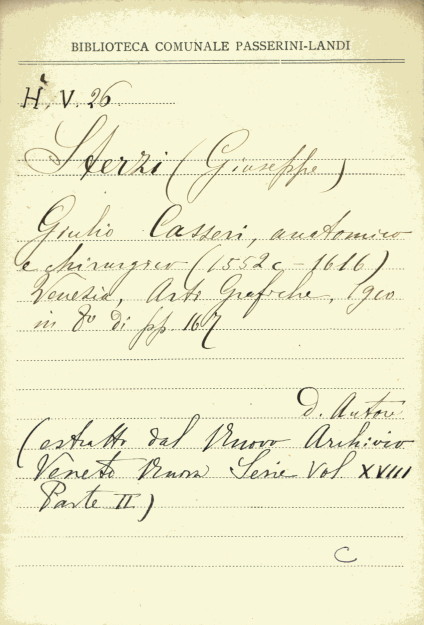 BIBLIOTECA COMUNALE PASSERINI-LANDI
H. V. 26
Sterzi (Giuseppe)
Giulio Casseri, anatomico
e chirurgico (1552c - 1616)
Venezia, Arti Grafiche, 1910
in 8º di pp. 167
d. Autore
(estratto dal Nuovo Archivio
Veneto Nuova Serie Vol XVIII
Parte II)
C